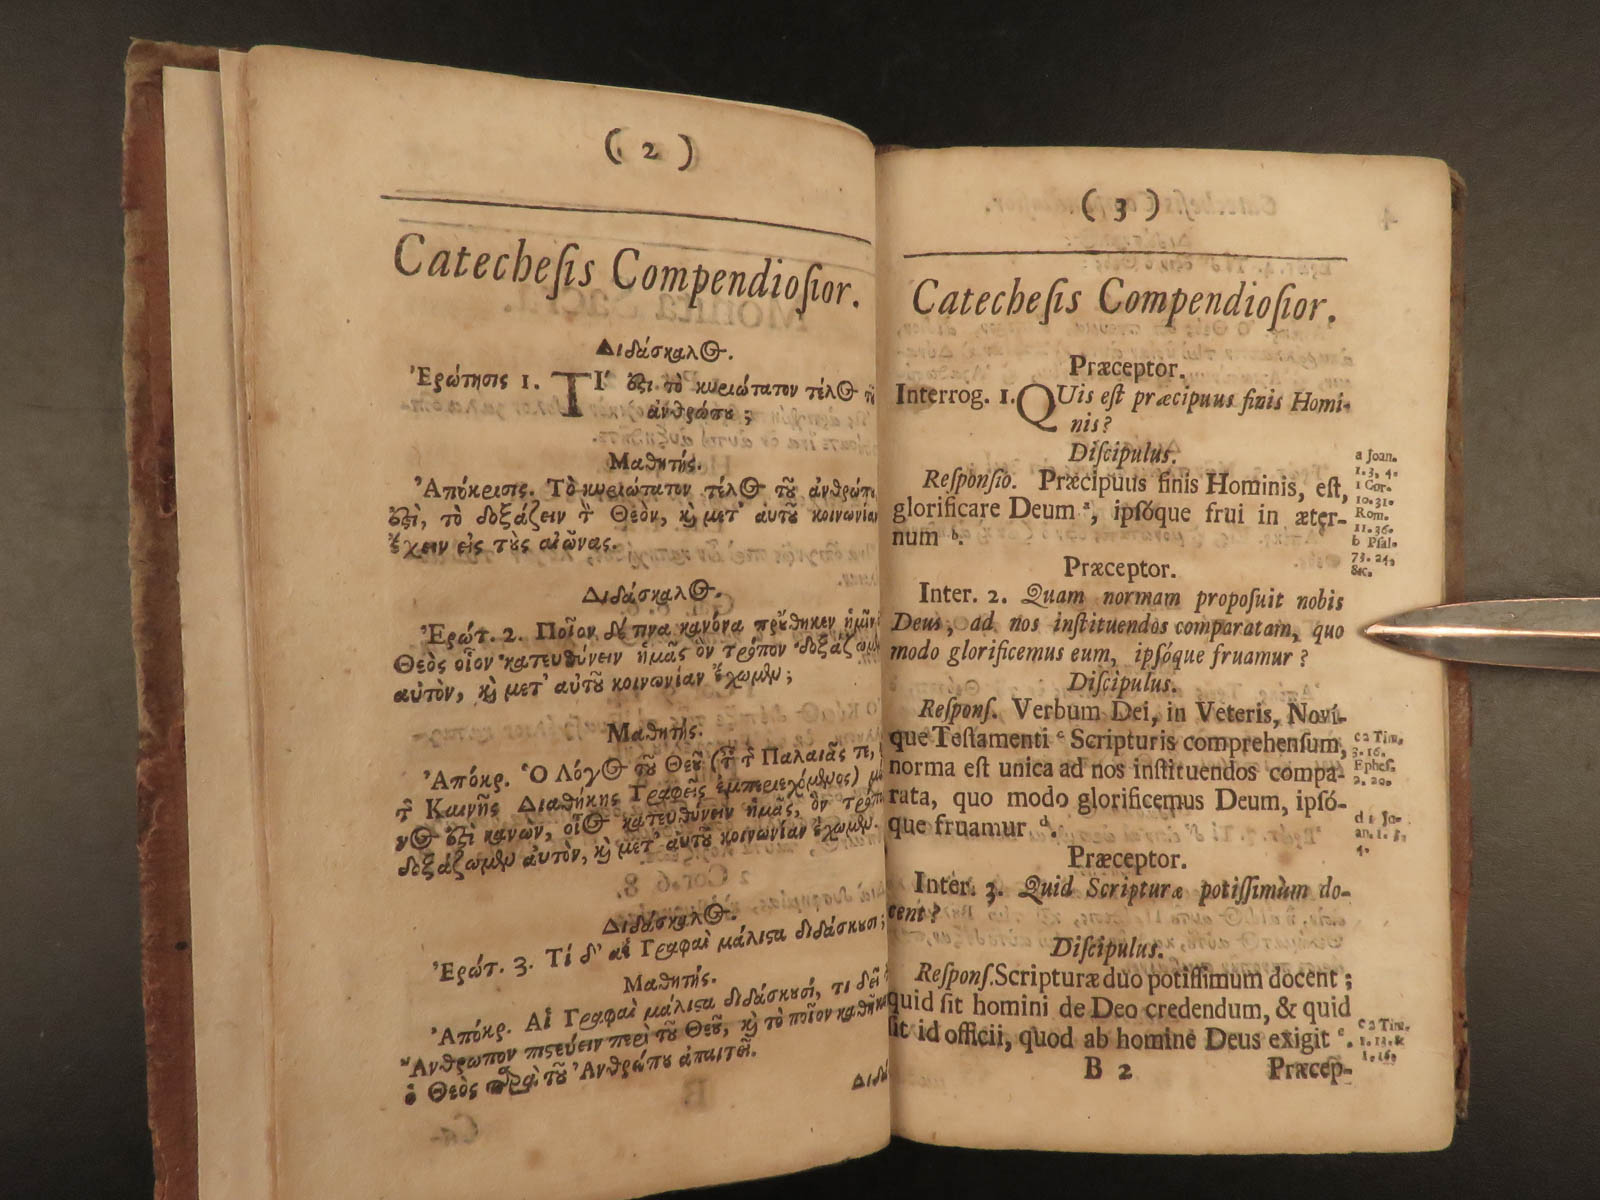 ( 2 )
Catecheſis Compendioſior.
Διδάσκαλος.
Ἐρώτησις 1. ΤΙ´ ἐστὶ τὸ κυριώτατον τέλος τῦ
ἀνθρώπου;
Μαθητής.
Ἀπόκρισις. Τὸ κυριώτατον τέλος τοῦ ἀνθρώπου
ἐστὶ, τὸ δοξάζειν τὸν Θεὸν, καὶ μετ' αὐτοῦ κοινωνίαν
ἔχειν εἰς τοὺς αἰῶνας.
Διδάσκαλος.
Ἐρώτ. 2. Ποῖον δέ τινα κανόνα προὔθηκεν ἡμῖν
Θεὸς οἷον κατευθύνειν ἡμᾶς ὃν τρόπον δοξάζωμεν
αὐτὸν, καὶ μετ' αὐτοῦ κοινωνίαν ἔχωμεν;
Μαθητής.
Ἀπόκρ. Ὁ Λόγος τοῦ Θεοῦ (τῆς τῆς Παλαιᾶς τε,
τῆς Καινῆς Διαθήκης Γραφαῖς ἐμπεριεχόμενος)
νος ἐστὶ κανὼν, οἷος κατευθύνειν ἡμᾶς, ὃν τρόπον
δοξάζωμεν αὐτὸν, καὶ μετ' αὐτοῦ κοινωνίαν ἔχωμεν.
Διδάσκαλος.
Ἐρώτ. 3. Τί δ' αἱ Γραφαὶ μάλιστα διδάσκουσι;
Μαθητής.
Ἀπόκρ. Αἱ Γραφαὶ μάλιστα διδάσκουσί, τι δεῖ
Ἄνθρωπον πιστεύειν περὶ τοῦ Θεοῦ, καὶ τὸ ποῖον
ὁ Θεὸς παρὰ τοῦ Ἀνθρώπου ἀπαιτεῖ.
Διδά
( 3 )
Catecheſis Compendioſior.
Præceptor.
Interrog. 1. QUis eſt præcipuus finis Homi-
nis?
Diſcipulus.
Reſponſio. Præcipuus finis Hominis, eſt,
glorificare Deum a, ipſóque frui in æter-
num b.
a Joan.
1. 3, 4.
1 Cor.
10. 31.
Rom.
11. 36.
b Pſal.
73. 24,
&c.
Præceptor.
Inter. 2. Quam normam propoſuit nobis
Deus, ad nos inſtituendos comparatam, quo
modo glorificemus eum, ipſóque fruamur?
Diſcipulus.
Reſponſ. Verbum Dei, in Veteris, Noví-
que Teſtamenti c Scripturis comprehenſum,
norma eſt unica ad nos inſtituendos compa-
rata, quo modo glorificemus Deum, ipſó-
que fruamur d.
c 2 Tim.
3. 16.
Epheſ.
2. 20.
d 1 Jo-
an. 1. 3,
4.
Præceptor.
Inter. 3. Quid Scripturæ potiſſimùm do-
cent?
Diſcipulus.
Reſponſ. Scripturæ duo potiſſimum docent;
quid ſit homini de Deo credendum, & quid
ſit id officii, quod ab homine Deus exigit e.
e 2 Tim.
1. 13. &
B 2
Præcep-